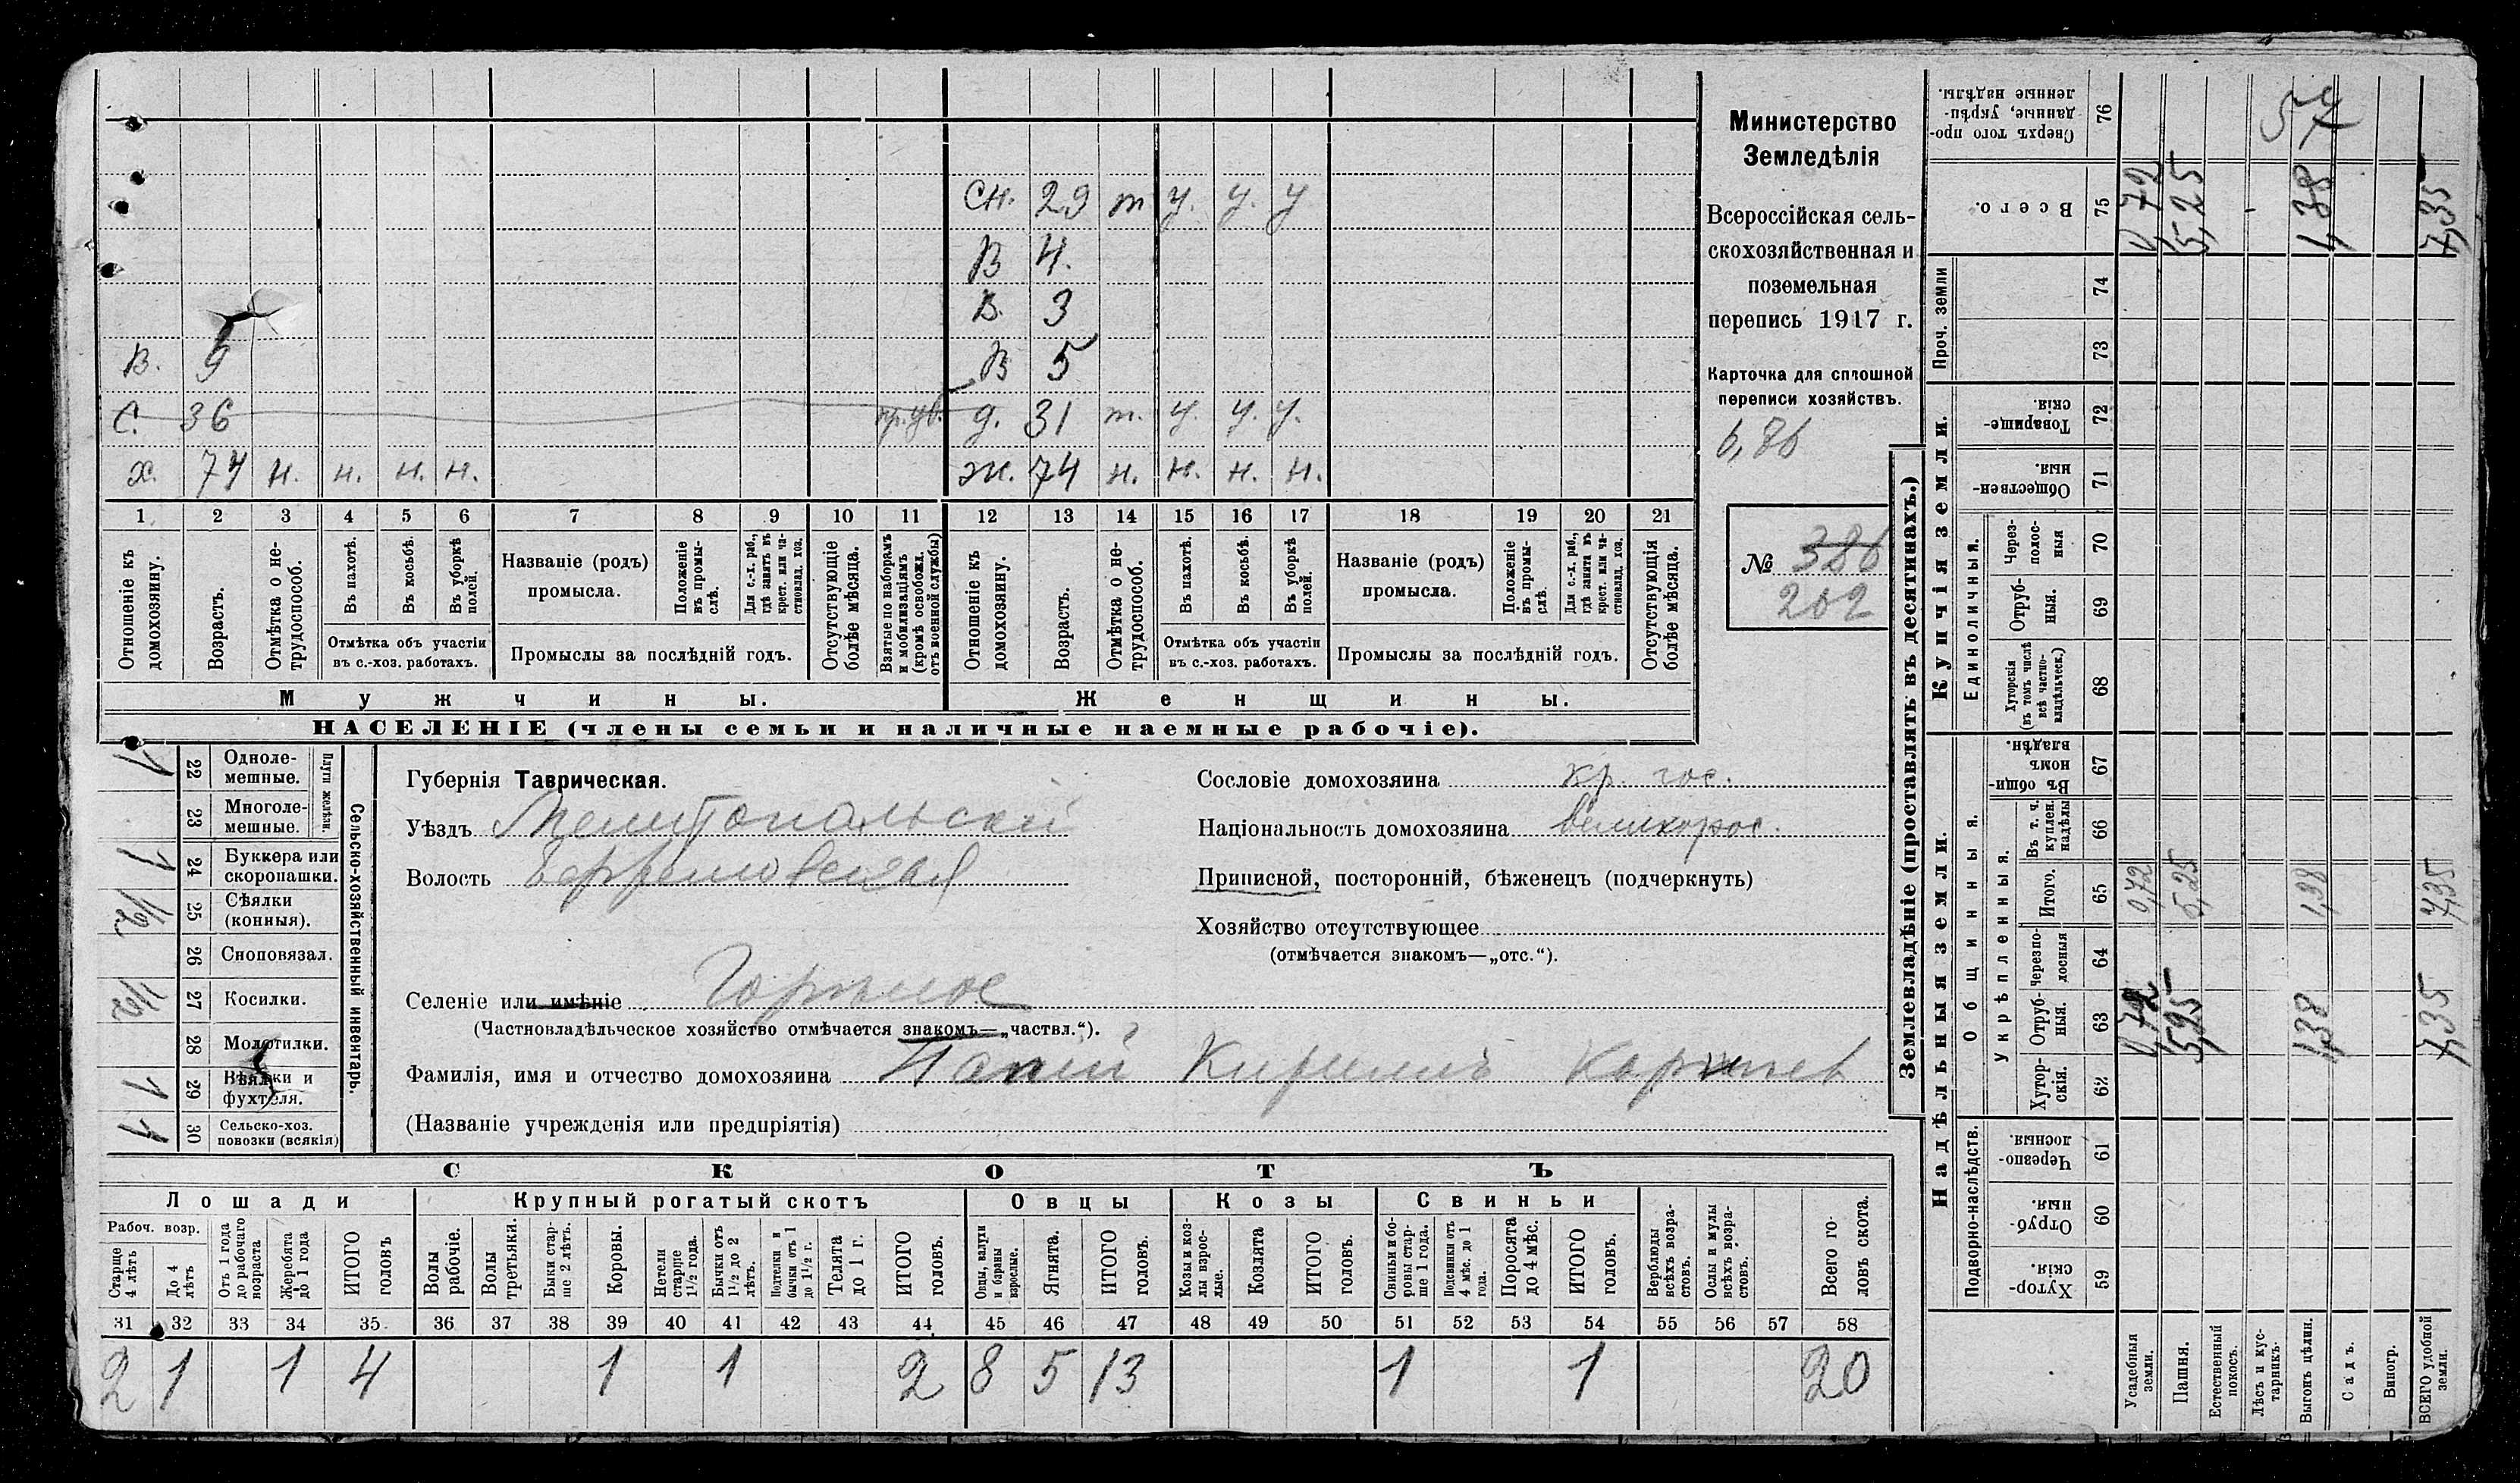 сн. 29 т у. у. у
в 4.
в. 3
в. 9 в 5
с. 36 пр. ув. д. 31 т. у. у. у.
х. 74 н. н. н. н. ж. 74 н. н. н. н.
1 2 3 4 5 6 7 8 9 10 11 12 13 14 15 16 17 18 19 20 21
Отношеніе къ домохозяину.
Возрастъ.
Отмѣтка о нетрудоспособ.
Въ пахотѣ.
Въ косьбѣ.
Въ уборкѣ полей.
Отмѣтка объ участіи
въ с.-хоз. работахъ.
Названіе (родъ)
промысла.
Положеніе въ промыслѣ.
Для с.-х. раб., гдѣ занятъ въ крест. или частновлад. хоз.
Промыслы за послѣдній годъ.
Отсутствующіе болѣе мѣсяца.
Взятые по наборамъ и мобилизаціямъ (кромѣ освобожд. отъ военной службы)
Отношеніе къ домохозяину.
Возрастъ.
Отмѣтка о нетрудоспособ.
Въ пахотѣ.
Въ косьбѣ.
Въ уборкѣ полей.
Отмѣтка объ участіи
въ с.-хоз. работахъ.
Названіе (родъ)
промысла.
Положеніе въ промыслѣ.
Для с.-х. раб., гдѣ занятъ въ крест. или частновлад. хоз.
Промыслы за послѣдній годъ.
Отсутствующія болѣе мѣсяца.
Мужчины.
Женщины.
НАСЕЛЕНІЕ (члены семьи и наличные наемные рабочіе).
Министерство
Земледѣлія
Всероссійская сель-
скохозяйственная и
поземельная
перепись 1917 г.
Карточка для сплошной
переписи хозяйствъ.
6,86
№ 386
202
Сельско-хозяйственный инвентарь.
Плуги желѣзн.
1 22 Одноле-
мешные.
23 Многоле-
мешные.
1 24 Буккера или
скоропашки.
1/2 25 Сѣялки
(конныя).
26 Сноповязал.
1/2 27 Косилки.
28 Молотилки.
1 29 Вѣялки и
фухтеля.
1 30 Сельско-хоз.
повозки (всякія)
Губернія Таврическая.
Уѣздъ Мелитопольскій
Волость
Селеніе или имѣніе Горѣлое
(Частновладѣльческое хозяйство отмѣчается знакомъ—„частвл.“).
Фамилія, имя и отчество домохозяина Кириллъ
(Названіе учрежденія или предпріятія)
Сословіе домохозяина кр. гос.
Національность домохозяина великорос.
Приписной, посторонній, бѣженецъ (подчеркнуть)
Хозяйство отсутствующее
(отмѣчается знакомъ—„отс.“).
СКОТЪ
Лошади Крупный рогатый скотъ Овцы Козы Свиньи
Рабоч. возр.
Старше 4 лѣтъ
До 4 лѣтъ
Отъ 1 года до рабочаго возраста
Жеребята до 1 года
ИТОГО головъ
Волы рабочіе.
Волы третьяки.
Быки старше 2 лѣтъ.
Коровы.
Нетели старше 1½ года.
Бычки отъ 1½ до 2 лѣтъ.
Подтелки и бычки отъ 1 до 1½ г.
Телята до 1 г.
ИТОГО головъ.
Овцы, валухи и бараны взрослые.
Ягнята.
ИТОГО головъ.
Козы и козлы взрослые.
Козлята
ИТОГО головъ.
Свиньи и боровы старше 1 года.
Подсвинки отъ 4 мѣс. до 1 года.
Поросята до 4 мѣс.
ИТОГО головъ.
Верблюды всѣхъ возрастовъ.
Ослы и мулы всѣхъ возрастовъ.
Всего головъ скота.
31 32 33 34 35 36 37 38 39 40 41 42 43 44 45 46 47 48 49 50 51 52 53 54 55 56 57 58
2 1 1 4 1 1 2 8 5 13 1 1 20
Землевладѣніе (проставлять въ десятинахъ.)
Купчія земли.
Надѣльныя земли.
Проч. земли
Сверхъ того проданные, укрѣпленные надѣлы. 76
57
Всего. 75 0,72 5,25 - 1,38 7,35
74
73
Товарищескія. 72
Общественныя. 71
Единоличныя.
Черезполосныя 70
Отрубныя. 69
Хуторскія (въ томъ числѣ всѣ частновладѣльческ.) 68
Общинныя.
Въ общинномъ владѣн. 67
Укрѣпленныя.
Въ т. ч. куплен. надѣлы 66
Итого. 65 0,72 5,25 1,38 7,35
Черезполосныя 64
Отрубныя. 63 0,72 5,25 1,38 7,35
Хуторскія. 62
Подворно-наслѣдств.
Черезполосныя. 61
Отрубныя. 60
Хуторскія. 59
Усадебныя земли.
Пашня.
Естественный покосъ.
Лѣсъ и кустарникъ.
Выгонъ цѣлин.
Садъ.
Виногр.
ВСЕГО удобной земли.